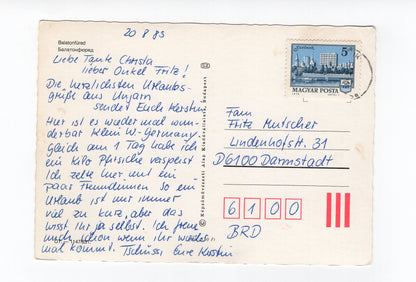 20 8 83
Balatonfüred
Балатонфюред
Liebe Tante Christa
lieber Onkel Fritz!
Die herzlichsten Urlaubs-
grüße aus Ungarn
sendet Euch Kerstin
Hier ist es wieder mal wun-
derbar klein W-Germany.
Gleich am 1 Tag habe ich
ein Kilo Pfirsiche verspeist
Ich zelte hier mit ein
paar Freundinnen so ein
Urlaub ist nur immer
viel zu kurz, aber das
wisst ihr ja selbst. Ich freue
mich schon wenn ihr wieder
mal kommt. Tschüssi Eure Kerstin
Képzőművészeti Alap Kiadóvállalata, Budapest
5Ft
MAGYAR POSTA
Fam
Fritz Mutscher
Lindenhofstr. 31
D6100 Darmstadt
6100
BRD